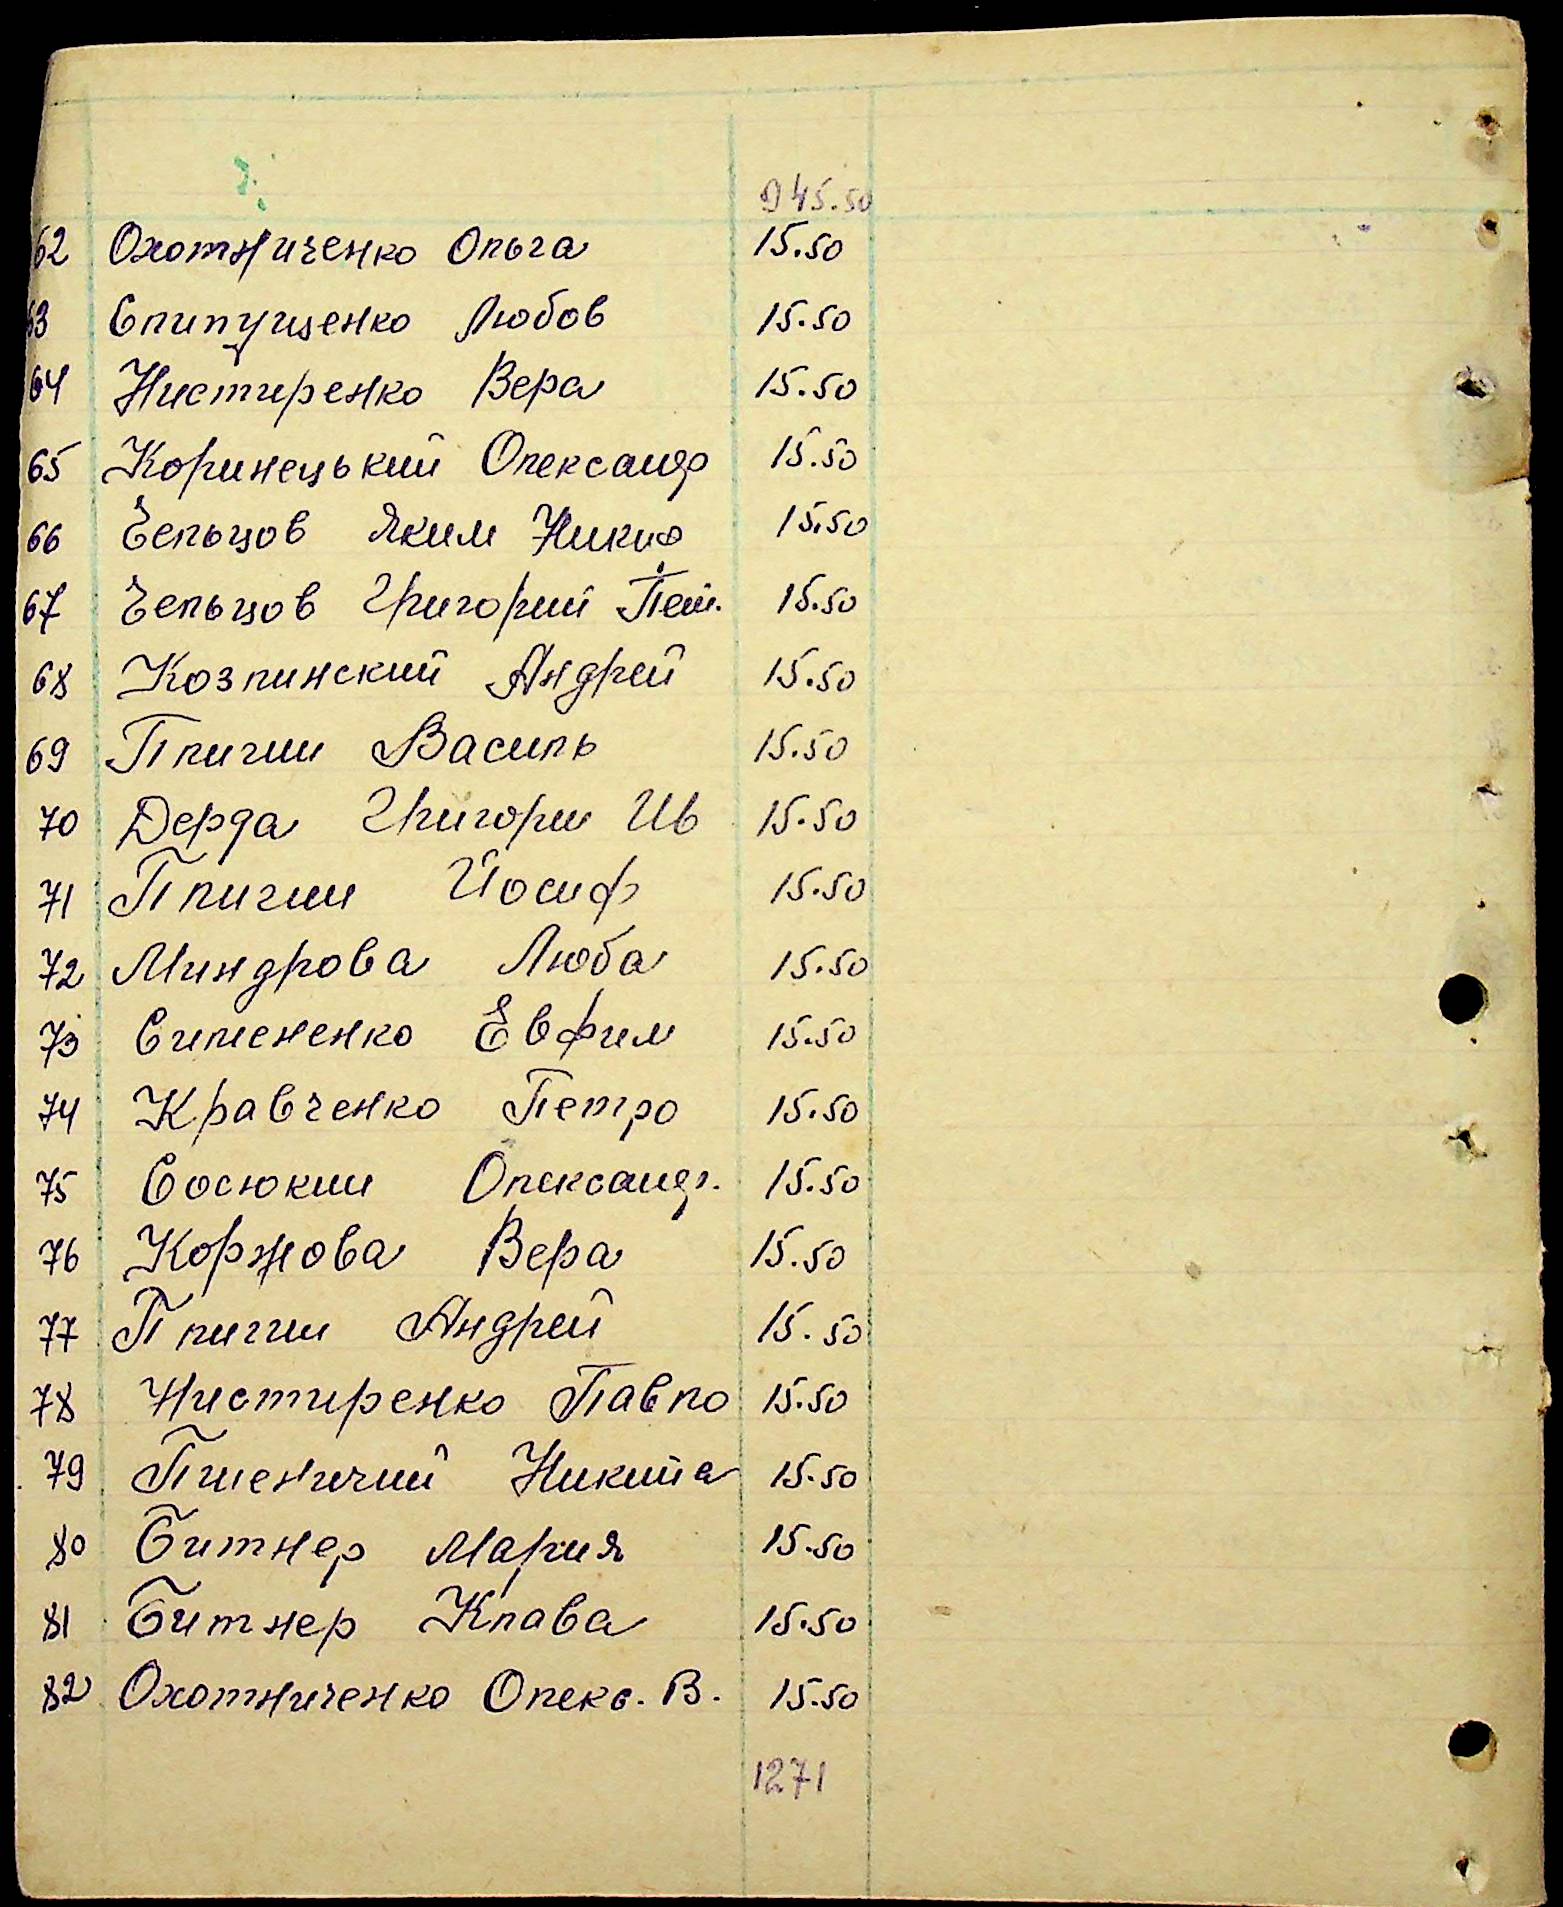 945.50
62 Охотниченко Ольга 15.50
63 Слипущенко Любов 15.50
64 Нистиренко Вера 15.50
65 Коринецький Олександр 15.50
66 Чельцов Яким Никиф 15.50
67 Чельцов Григорий Пет. 15.50
68 Козлинский Андрей 15.50
69 Плигии Василь 15.50
70 Дерда Григори Ив 15.50
71 Плигии Йосиф 15.50
72 Миндрова Люба 15.50
73 Симененко Евфим 15.50
74 Кравченко Петро 15.50
75 Сосюкии Олександр. 15.50
76 Коржова Вера 15.50
77 Плигии Андрей 15.50
78 Нистиренко Павло 15.50
79 Пшеничий Никита 15.50
80 Битнер Мария 15.50
81 Битнер Клава 15.50
82 Охотниченко Олекс. В. 15.50
1271